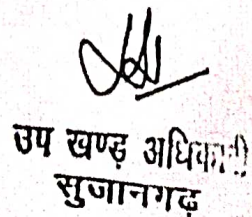 उप खण्ड अधिकारी
सुजानगढ़